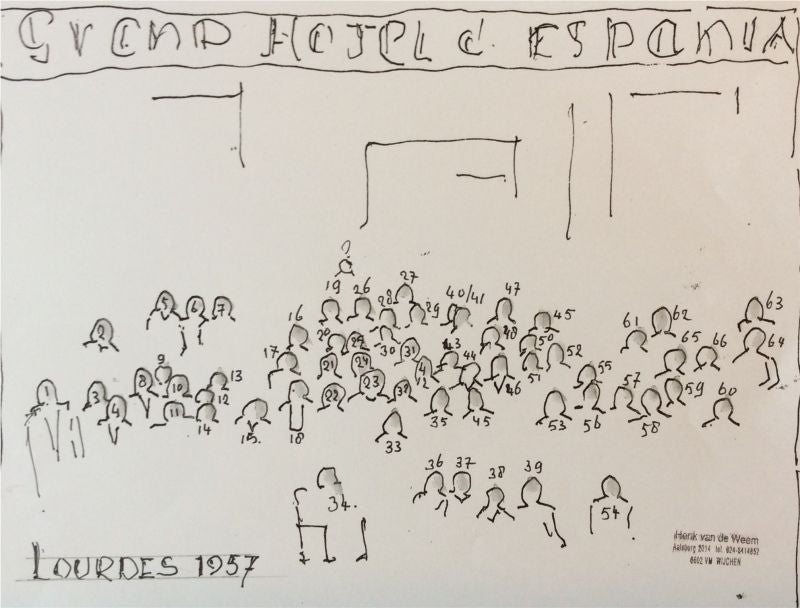 GVEND HOTEL d. ESPANIA
?
19 26 27 28 29 40/41 47 45
5 6 7
16 2 20 30 31 48 50 52 61 62 63
17 9 21 24 43 44 51 65 66 64
1 3 8 10 13 12 22 23 42 46 55 57 59
4 11 14 15. 18 32 35 45 53 56 58 60
33
34. 36 37 38 39 54
LOURDES 1957
Henk van de Weem
6602 VM WIJCHEN